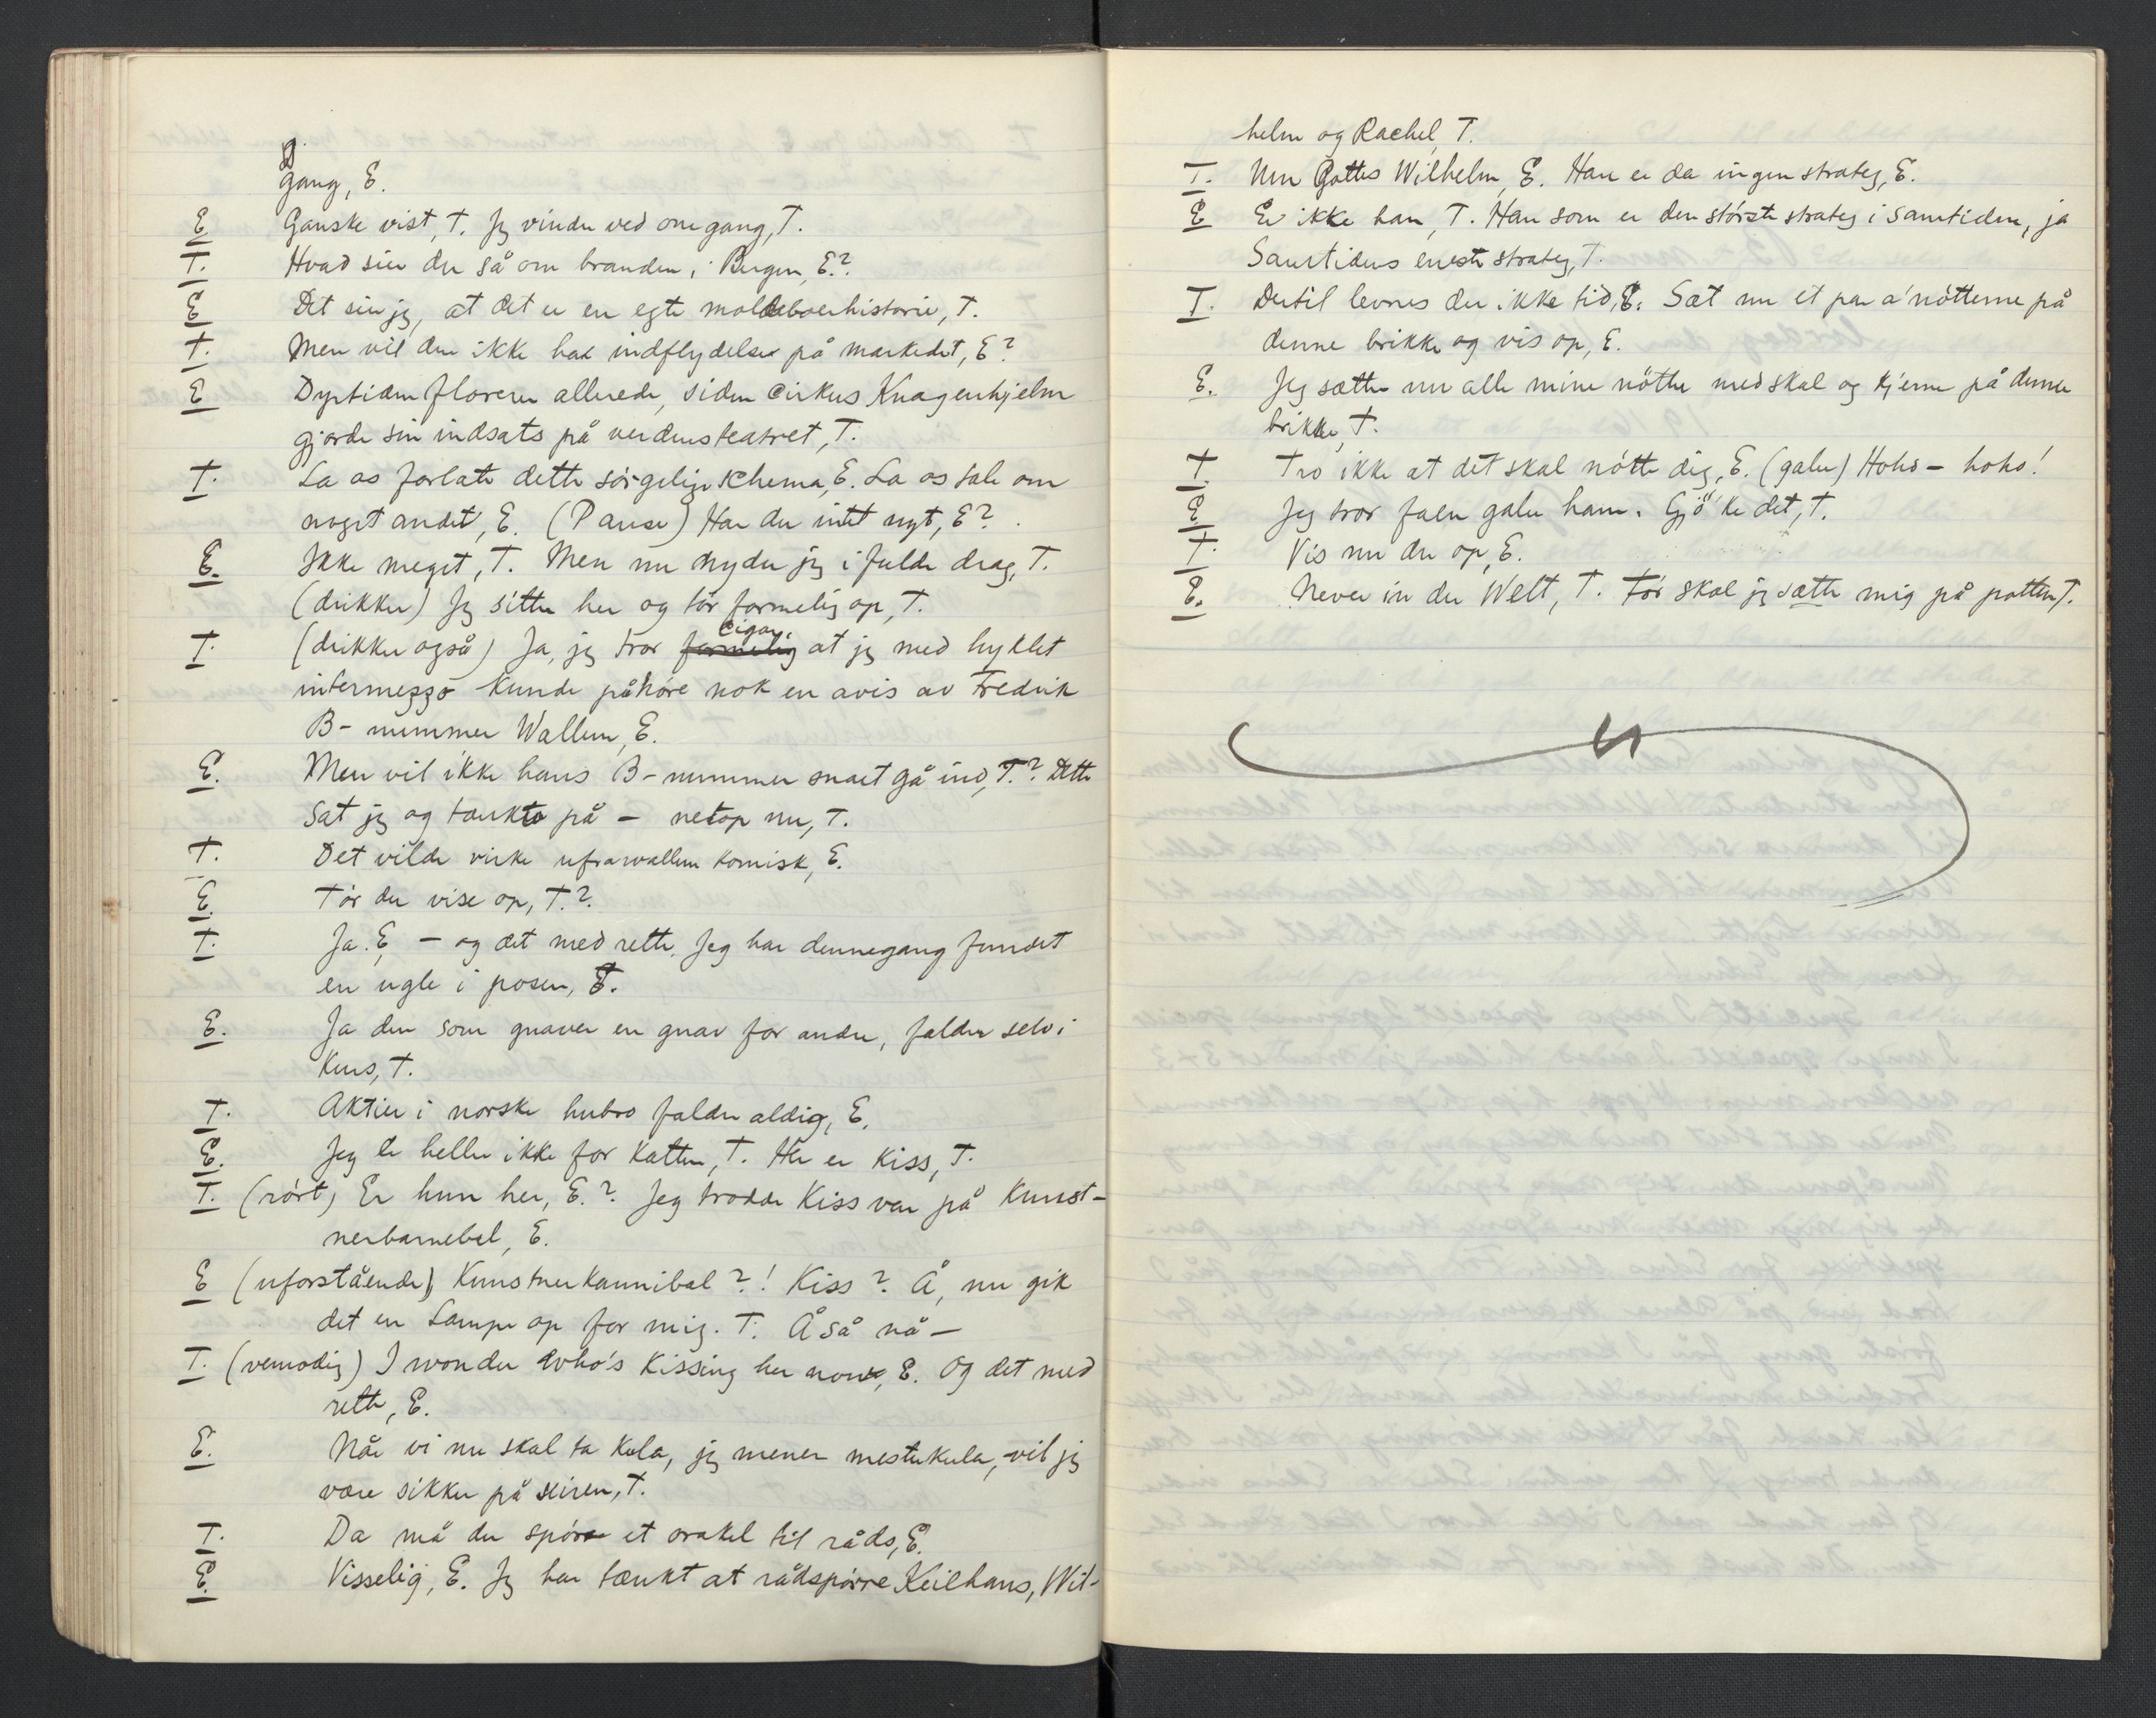 gang, E.
E Ganske vist, T. Jeg vinder ved omgang, T.
T. Hvad sier du så om branden i Bergen, E.?
E Det sier jeg, at det er en egte moldeboerhistorie, T.
T. Men vil den ikke ha indflydelse på markedet, E?
E Dyrtiden florerer allerede, siden Cirkus Knagenhjelm
gjorde sin indsats på verdensteatret, T.
T. La os forlate dette sørgelige schema, E. La os tale om
noget andet, E. (Pause) Har du intet nyt, E?
E. Ikke meget, T. Men nu nyder jeg i fulde drag, T.
(drikker) Jeg sitter her og tør formelig op, T.
T. (drikker også) Ja, jeg tror formelig cigar, at jeg med hyklet
intermezzo kunde påhøre nok en avis av Fredrik
B-nummer Wallem, E.
E. Men vil ikke hans B-nummer snart gå ind, T.? Dette
sat jeg og tænkte på – netop nu, T.
T. Det vilde virke ufrawallem komisk, E.
E. Tør du vise op, T.?
T. Ja. E, – og det med rette. Jeg har dennegang fundet
en ugle i posen, E.
E. Ja den som gnaver en gnav for andre, falder selv i
kurs, T.
T. Aktier i norske hubro falder aldig, E.
E. Jeg er heller ikke for katten, T. Her er Kiss, T.
T. (rørt) Er hun her, E.? Jeg trodde Kiss var på Kunst-
nerbarnebal, E.
E (uforstående) Kunstnerkannibal?! Kiss? Å, nu gik
det en Lampe op for mig. T. Å så nå –
T. (vemodig) I wonder who's Kissing her now, E. Og det med
rette, E.
E. Når vi nu skal ta kula, jeg mener mesterkula, vil jeg
være sikker på seiren, T.
T. Da må du spørre et orakel til råds, E.
E. Visselig, E. Jeg har tænkt at rådspørre Keilhaus, Wil-
helm og Rachel, T.
T. Um Gottes Wilhelm, E. Han er da ingen strateg, E.
E Er ikke han, T. Han som er den største strateg i samtiden, ja
Samtidens eneste strateg, T.
T. Dertil levnes der ikke tid, E. Sæt nu et par a' nøtterne på
denne brikke og vis op, E.
E. Jeg sætter nu alle mine nøtter med skal og kjerne på denne
brikke, T.
T. Tro ikke at det skal nøtte dig, E. (galer) Hoho – hoho!
E Jeg tror faen galer ham. Gjø'ke det, T.
T. Vis nu du op, E.
E. Never in der Welt, T. Før skal jeg sætte mig på potten, T.